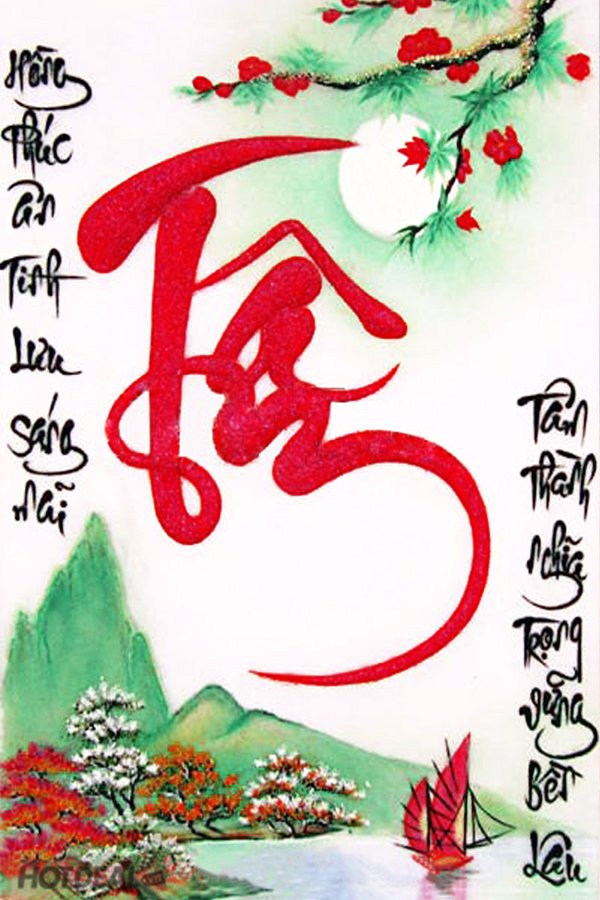 Tâm
Hồng
Phúc
ân
Tình
Lưu
sáng
mãi
Tâm
Thành
nghĩa
Trọng
vững
Bền
Lâu